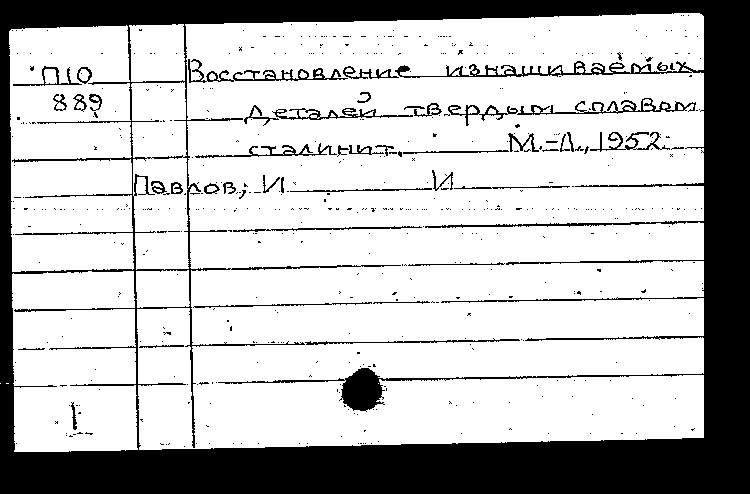 П10 Восстановление изнашиваемых
889 деталей твердым сплавом
сталинит. М.-Л., 1952.
Павлов, И. И.
1